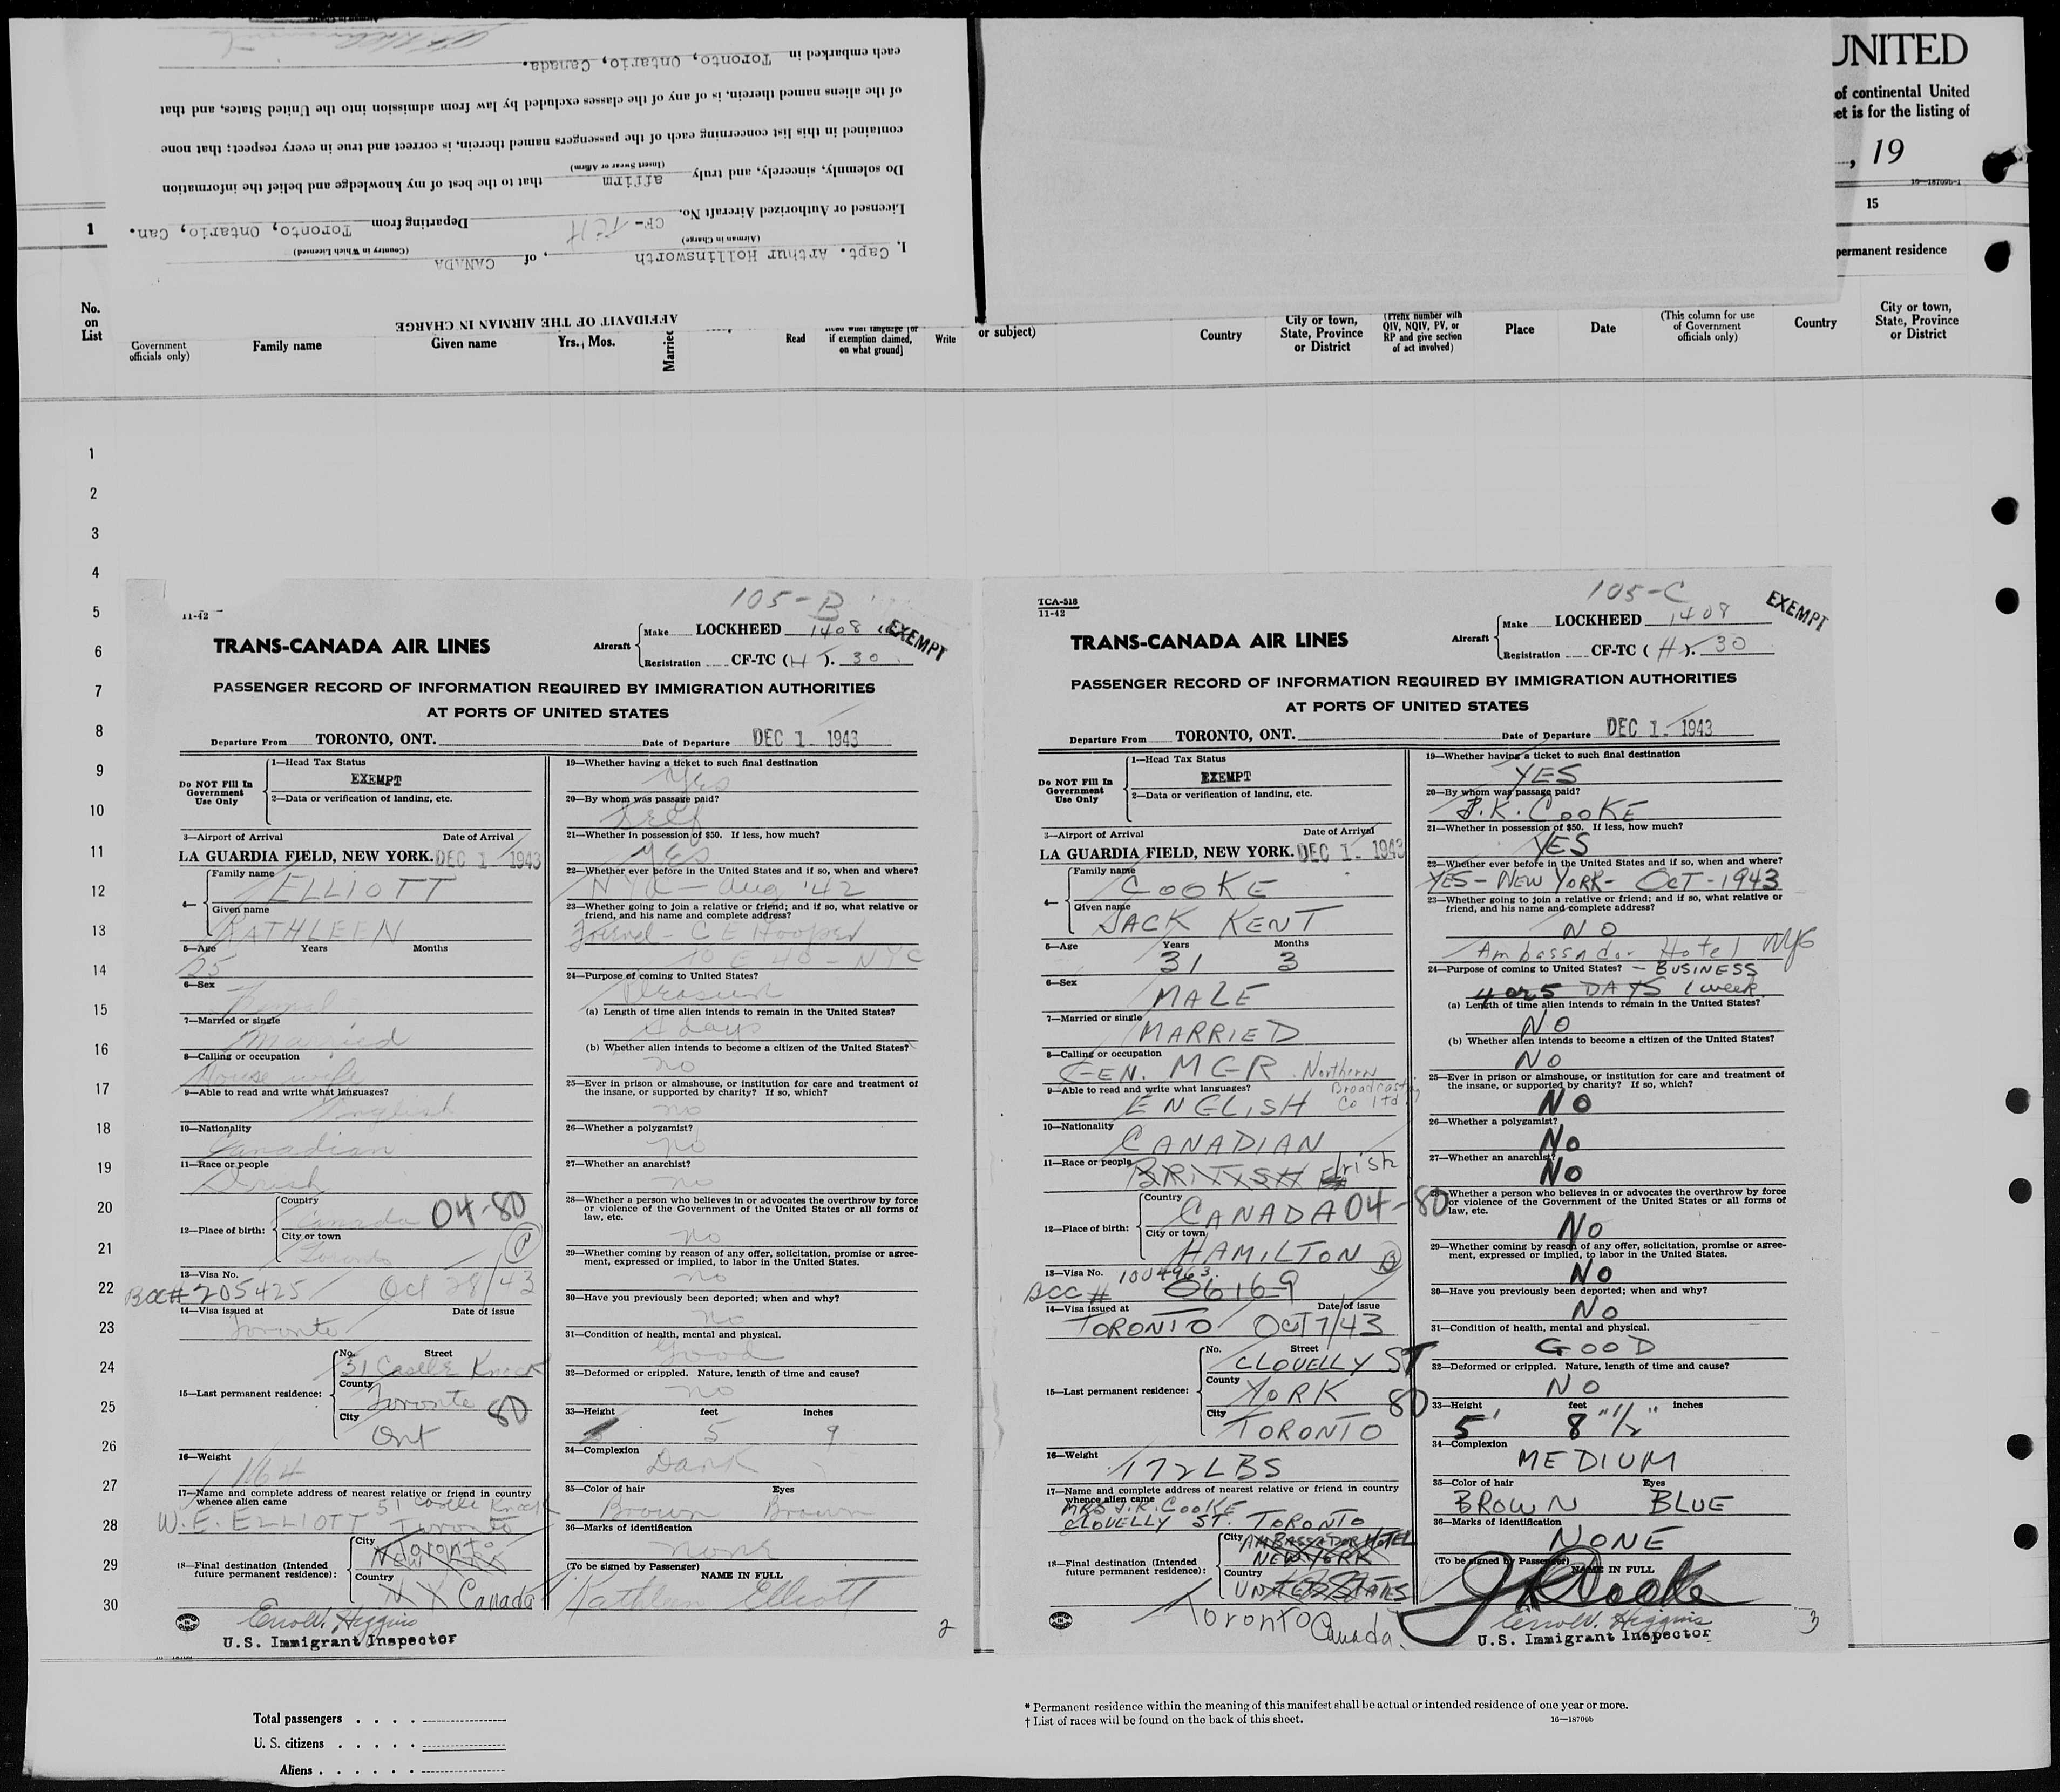 UNITED
of continental United
et is for the listing of
, 19
16—18709b-1
15
permanent residence
each embarked in Toronto, Ontario, Canada.
of the aliens named therein, is of any of the classes excluded by law from admission into the United States, and that
contained in this list concerning each of the passengers named therein, is correct and true in every respect; that none
(Insert Swear or Affirm)
Do solemnly, sincerely, and truly affirm that to the best of my knowledge and belief the information
Licensed or Authorized Aircraft No. CF-TCH Departing from Toronto, Ontario, Can.
(Airman in Charge) (Country in Which Licensed)
I, Capt. Arthur Hollinsworth, of CANADA
AFFIDAVIT OF THE AIRMAN IN CHARGE
1
No. on List
Government officials only)
Family name
Given name
Yrs. Mos.
Married
Read
[Read what language [or if exemption claimed, on what ground]
Write
or subject)
Country
City or town, State, Province or District
(Prefix number with QIV, NQIV, PV, or RP and give section of act involved)
Place
Date
(This column for use of Government officials only)
Country
City or town, State, Province or District
1
2
3
4
5
6
7
8
9
10
11
12
13
14
15
16
17
18
19
20
21
22
23
24
25
26
27
28
29
30
105-B
11-42
EXEMPT
TRANS-CANADA AIR LINES
Aircraft
Make LOCKHEED 1408
Registration CF-TC (H). 30
PASSENGER RECORD OF INFORMATION REQUIRED BY IMMIGRATION AUTHORITIES
AT PORTS OF UNITED STATES
Departure From TORONTO, ONT. Date of Departure DEC 1 - 1943
Do NOT Fill In Government Use Only
1—Head Tax Status
EXEMPT
2—Data or verification of landing, etc.
3—Airport of Arrival Date of Arrival
LA GUARDIA FIELD, NEW YORK. DEC 1 1943
4—
Family name
ELLIOTT
Given name
KATHLEEN
5—Age Years Months
25
6—Sex
Femal
7—Married or single
Married
8—Calling or occupation
House wife
9—Able to read and write what languages?
English
10—Nationality
Canadian
11—Race or people
Irish
12—Place of birth:
Country
Canada 04-80
City or town
Toronto
13—Visa No.
BCC# 205425 Oct 28/43
14—Visa issued at Date of issue
Toronto
15—Last permanent residence:
No. Street
51 Castle Knock
County
Toronto 80
City
Ont
16—Weight
164
17—Name and complete address of nearest relative or friend in country whence alien came
51 Castle Knock
W. E. ELLIOTT Toronto
18—Final destination (Intended future permanent residence):
City
Toronto
NEW YORK
Country
N Y Canada
Errol W. Higgins
U.S. Immigrant Inspector
19—Whether having a ticket to such final destination
Yes
20—By whom was passage paid?
Self
21—Whether in possession of $50. If less, how much?
Yes
22—Whether ever before in the United States and if so, when and where?
NYC — Aug '42
23—Whether going to join a relative or friend; and if so, what relative or friend, and his name and complete address?
Friend - C E Hooper
10 E 40 - NYC
24—Purpose of coming to United States?
Pleasure
(a) Length of time alien intends to remain in the United States?
days
(b) Whether alien intends to become a citizen of the United States?
no
25—Ever in prison or almshouse, or institution for care and treatment of the insane, or supported by charity? If so, which?
no
26—Whether a polygamist?
no
27—Whether an anarchist?
no
28—Whether a person who believes in or advocates the overthrow by force or violence of the Government of the United States or all forms of law, etc.
no
29—Whether coming by reason of any offer, solicitation, promise or agreement, expressed or implied, to labor in the United States.
no
30—Have you previously been deported; when and why?
no
31—Condition of health, mental and physical.
Good
32—Deformed or crippled. Nature, length of time and cause?
no
33—Height feet inches
5 9
34—Complexion
Dark
35—Color of hair Eyes
Brown Brown
36—Marks of identification
none
(To be signed by Passenger) NAME IN FULL
Kathleen Elliott
2
105-C
TCA-518
11-42
EXEMPT
TRANS-CANADA AIR LINES
Aircraft
Make LOCKHEED 1408
Registration CF-TC (H). 30
PASSENGER RECORD OF INFORMATION REQUIRED BY IMMIGRATION AUTHORITIES
AT PORTS OF UNITED STATES
Departure From TORONTO, ONT. Date of Departure DEC 1 - 1943
Do NOT Fill In Government Use Only
1—Head Tax Status
EXEMPT
2—Data or verification of landing, etc.
3—Airport of Arrival Date of Arrival
LA GUARDIA FIELD, NEW YORK. DEC 1 - 1943
4—
Family name
COOKE
Given name
JACK KENT
5—Age Years Months
31 3
6—Sex
MALE
7—Married or single
MARRIED
8—Calling or occupation
GEN. MGR Northern Broadcasting Co Ltd
9—Able to read and write what languages?
ENGLISH
10—Nationality
CANADIAN
11—Race or people
BRITISH Irish
12—Place of birth:
Country
CANADA 04-80
City or town
HAMILTON B
13—Visa No. 1004963.
BCC # 06169
14—Visa issued at Date of issue
TORONTO OCT 7/43
15—Last permanent residence:
No. Street
CLOVELLY ST
County
YORK 80
City
TORONTO
16—Weight
172 LBS
17—Name and complete address of nearest relative or friend in country whence alien came
MRS J. K. COOKE
CLOVELLY ST. TORONTO
18—Final destination (Intended future permanent residence):
City AMBASSADOR HOTEL
NEW YORK
Country
UNITED STATES
Toronto Canada.
19—Whether having a ticket to such final destination
YES
20—By whom was passage paid?
J. K. COOKE
21—Whether in possession of $50. If less, how much?
YES
22—Whether ever before in the United States and if so, when and where?
YES - NEW YORK - OCT - 1943
23—Whether going to join a relative or friend; and if so, what relative or friend, and his name and complete address?
NO
Ambassador Hotel NYC
24—Purpose of coming to United States? - BUSINESS
4 or 5 DAYS 1 week
(a) Length of time alien intends to remain in the United States?
NO
(b) Whether alien intends to become a citizen of the United States?
NO
25—Ever in prison or almshouse, or institution for care and treatment of the insane, or supported by charity? If so, which?
NO
26—Whether a polygamist?
NO
27—Whether an anarchist?
NO
Whether a person who believes in or advocates the overthrow by force or violence of the Government of the United States or all forms of law, etc.
NO
29—Whether coming by reason of any offer, solicitation, promise or agreement, expressed or implied, to labor in the United States.
NO
30—Have you previously been deported; when and why?
NO
31—Condition of health, mental and physical.
GOOD
32—Deformed or crippled. Nature, length of time and cause?
NO
33—Height feet inches
5' 8 "1/2"
34—Complexion
MEDIUM
35—Color of hair Eyes
BROWN BLUE
36—Marks of identification
NONE
(To be signed by Passenger) NAME IN FULL
J K Cooke
Errol W. Higgins
U.S. Immigrant Inspector
3
Total passengers
U. S. citizens
Aliens
* Permanent residence within the meaning of this manifest shall be actual or intended residence of one year or more.
† List of races will be found on the back of this sheet.
16—18709b